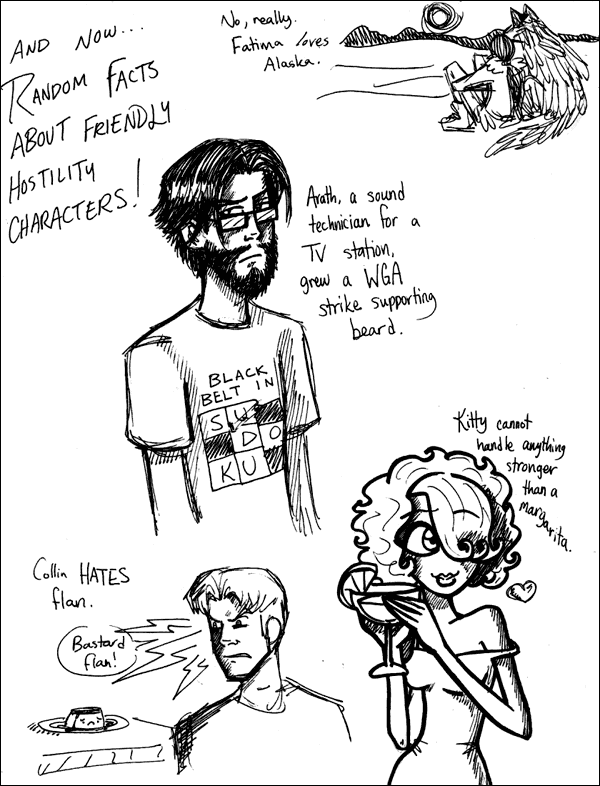 AND NOW...
RANDOM FACTS
ABOUT FRIENDLY
HOSTILITY
CHARACTERS!
No, really.
Fatima loves
Alaska.
Arath, a sound
technician for a
TV station,
grew a WGA
strike supporting
beard.
BLACK
BELT IN
SU
DO
KU
Kitty cannot
handle anything
stronger
than a
margarita.
Collin HATES
flan.
Bastard
flan!